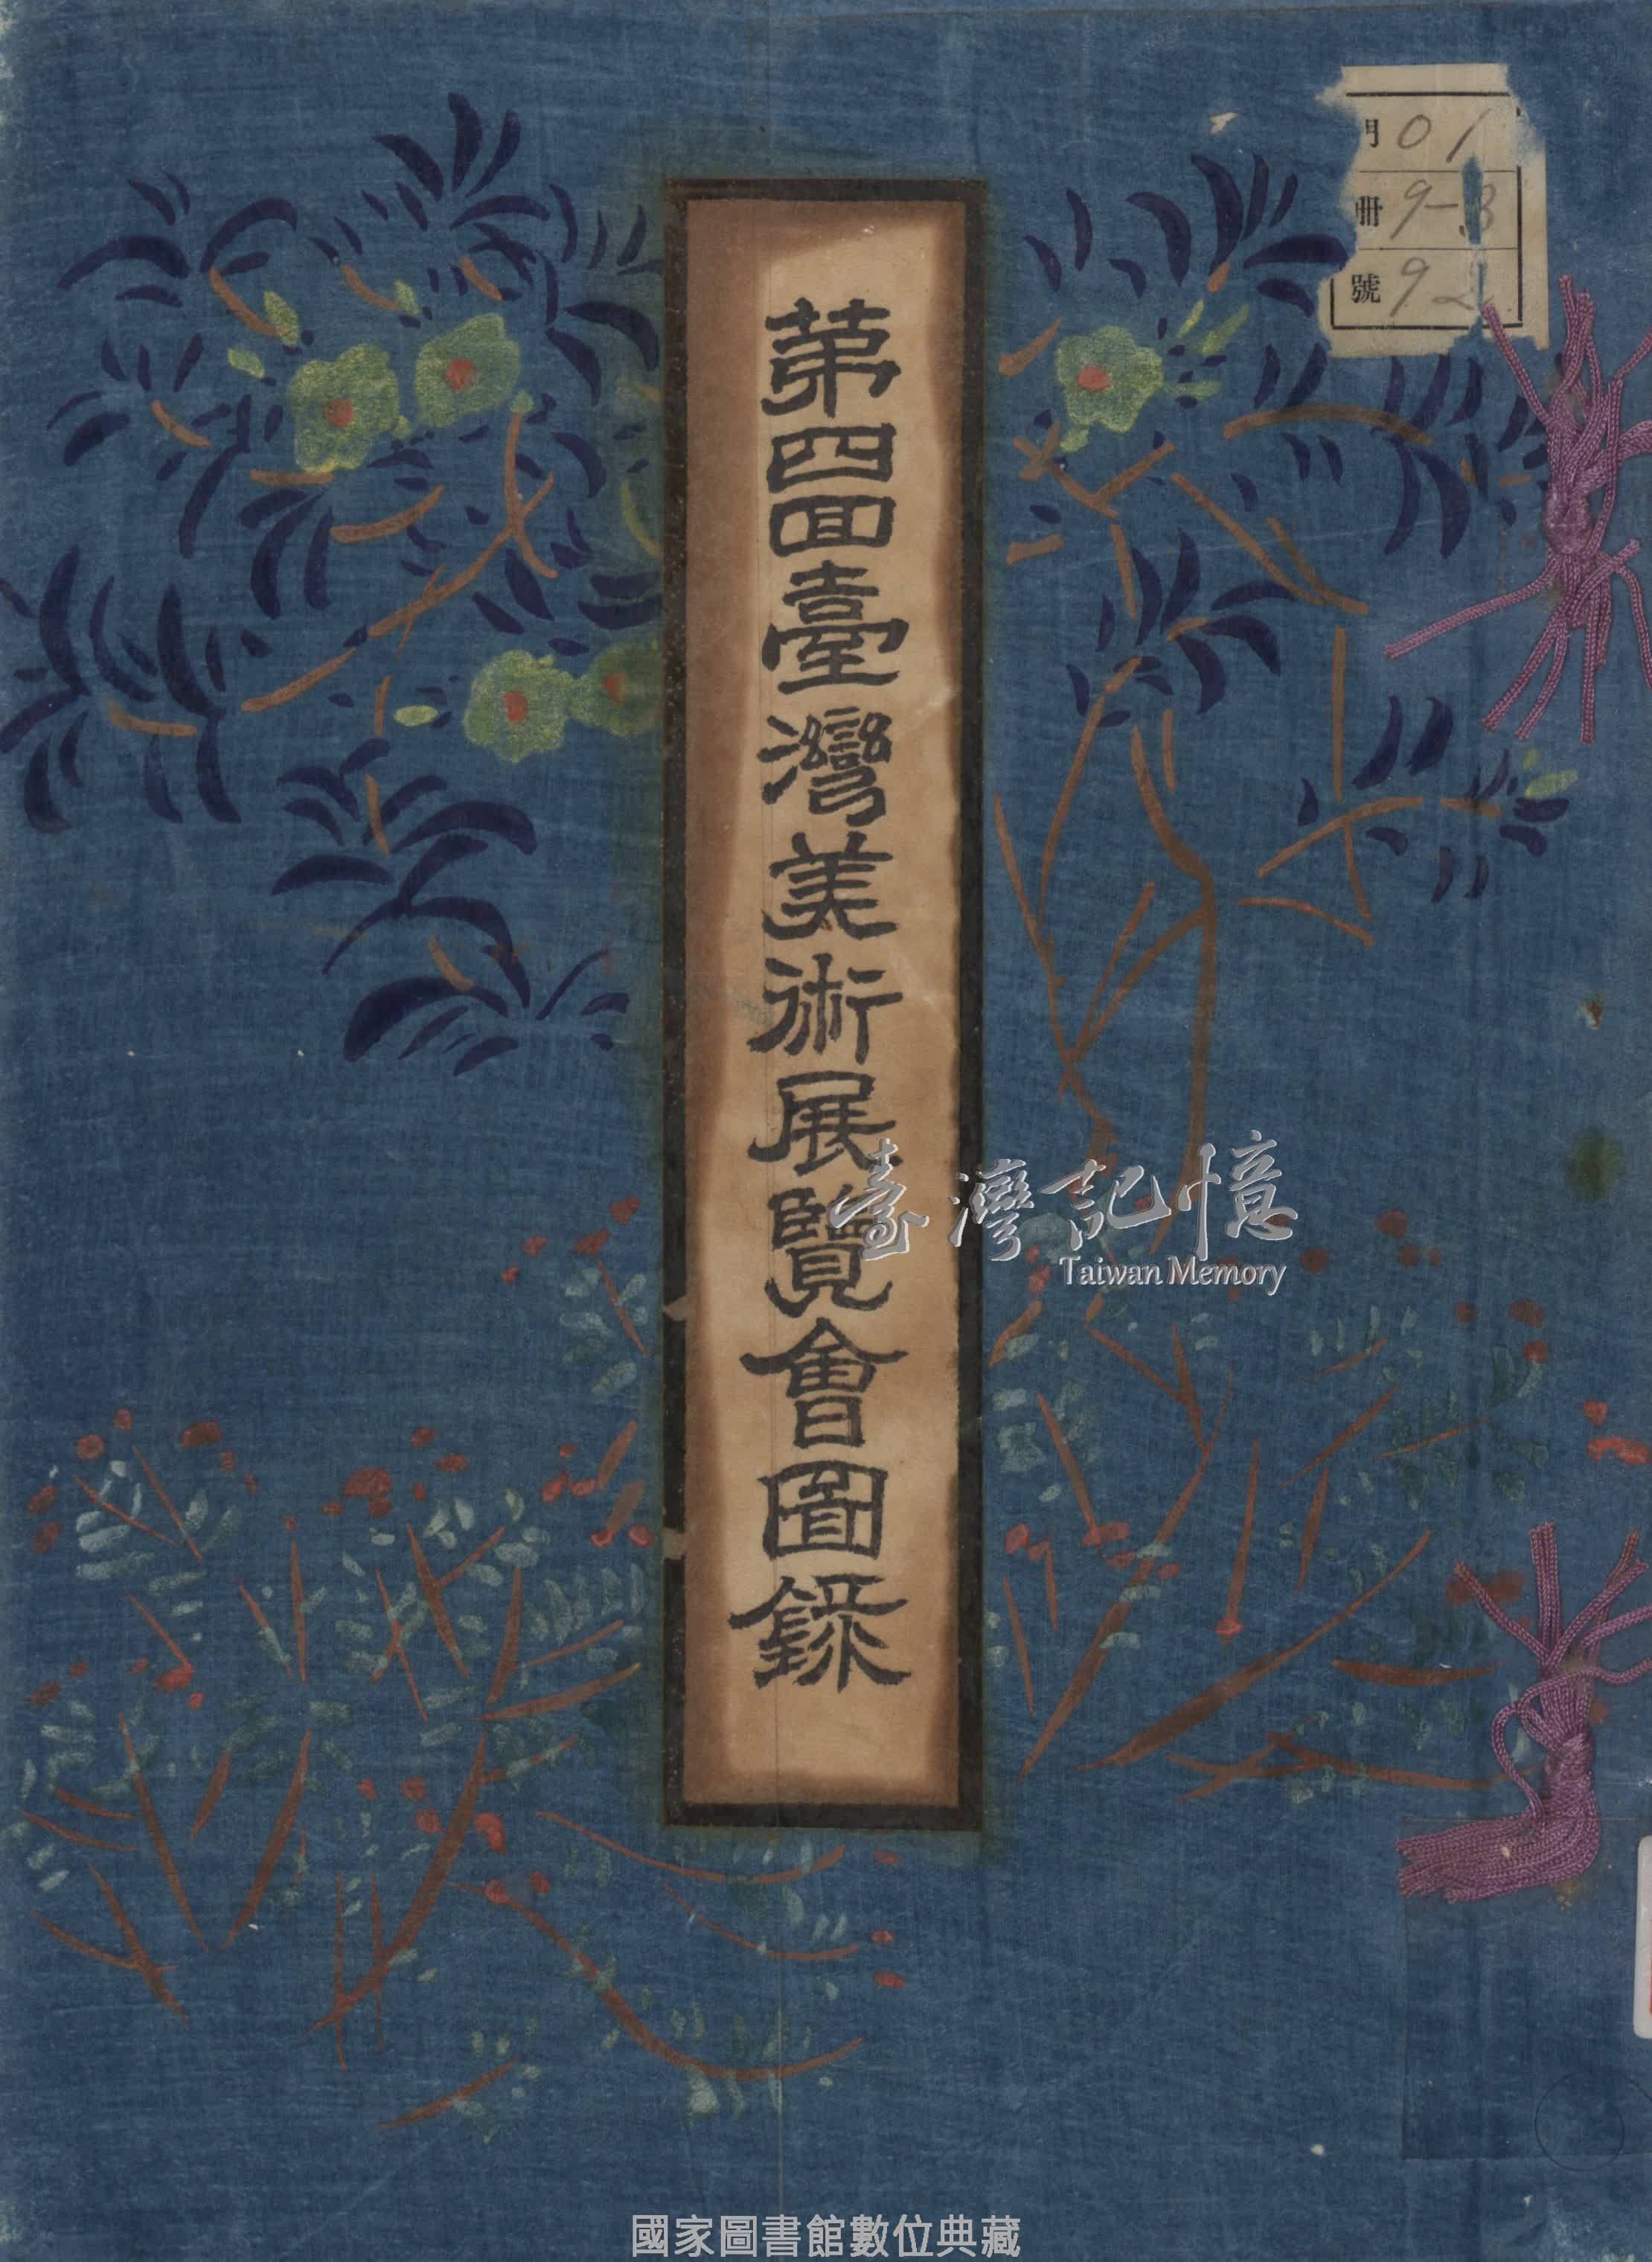 第四回臺灣美術展覽會圖錄
門 01
冊 9-3
號 92
臺灣記憶
Taiwan Memory
國家圖書館數位典藏